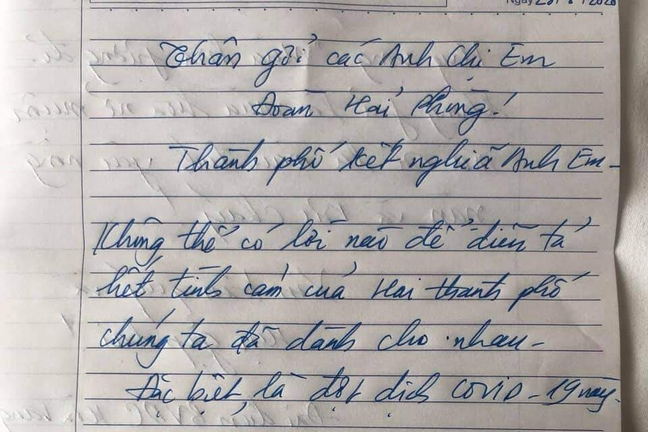 Ngày 20
Thân gửi các Anh Chị Em
Đoàn Hải Phòng!
Thành phố kết nghĩa Anh Em-
Không thể có lời nào để diễn tả
hết tình cảm của Hai thành phố
chúng ta đã dành cho nhau-
Đặc biệt, là đợt dịch COVID-19 này-